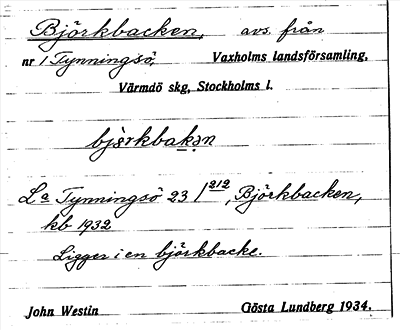 Björkbacken, avs. från
nr 1 Tynningsö, Vaxholms landsförsamling,
Värmdö skg, Stockholms l.
bjö̀rkbakən
La Tynningsö 23 1/212, Björkbacken,
kb 1932
Ligger i en björkbacke.
John Westin Gösta Lundberg 1934.